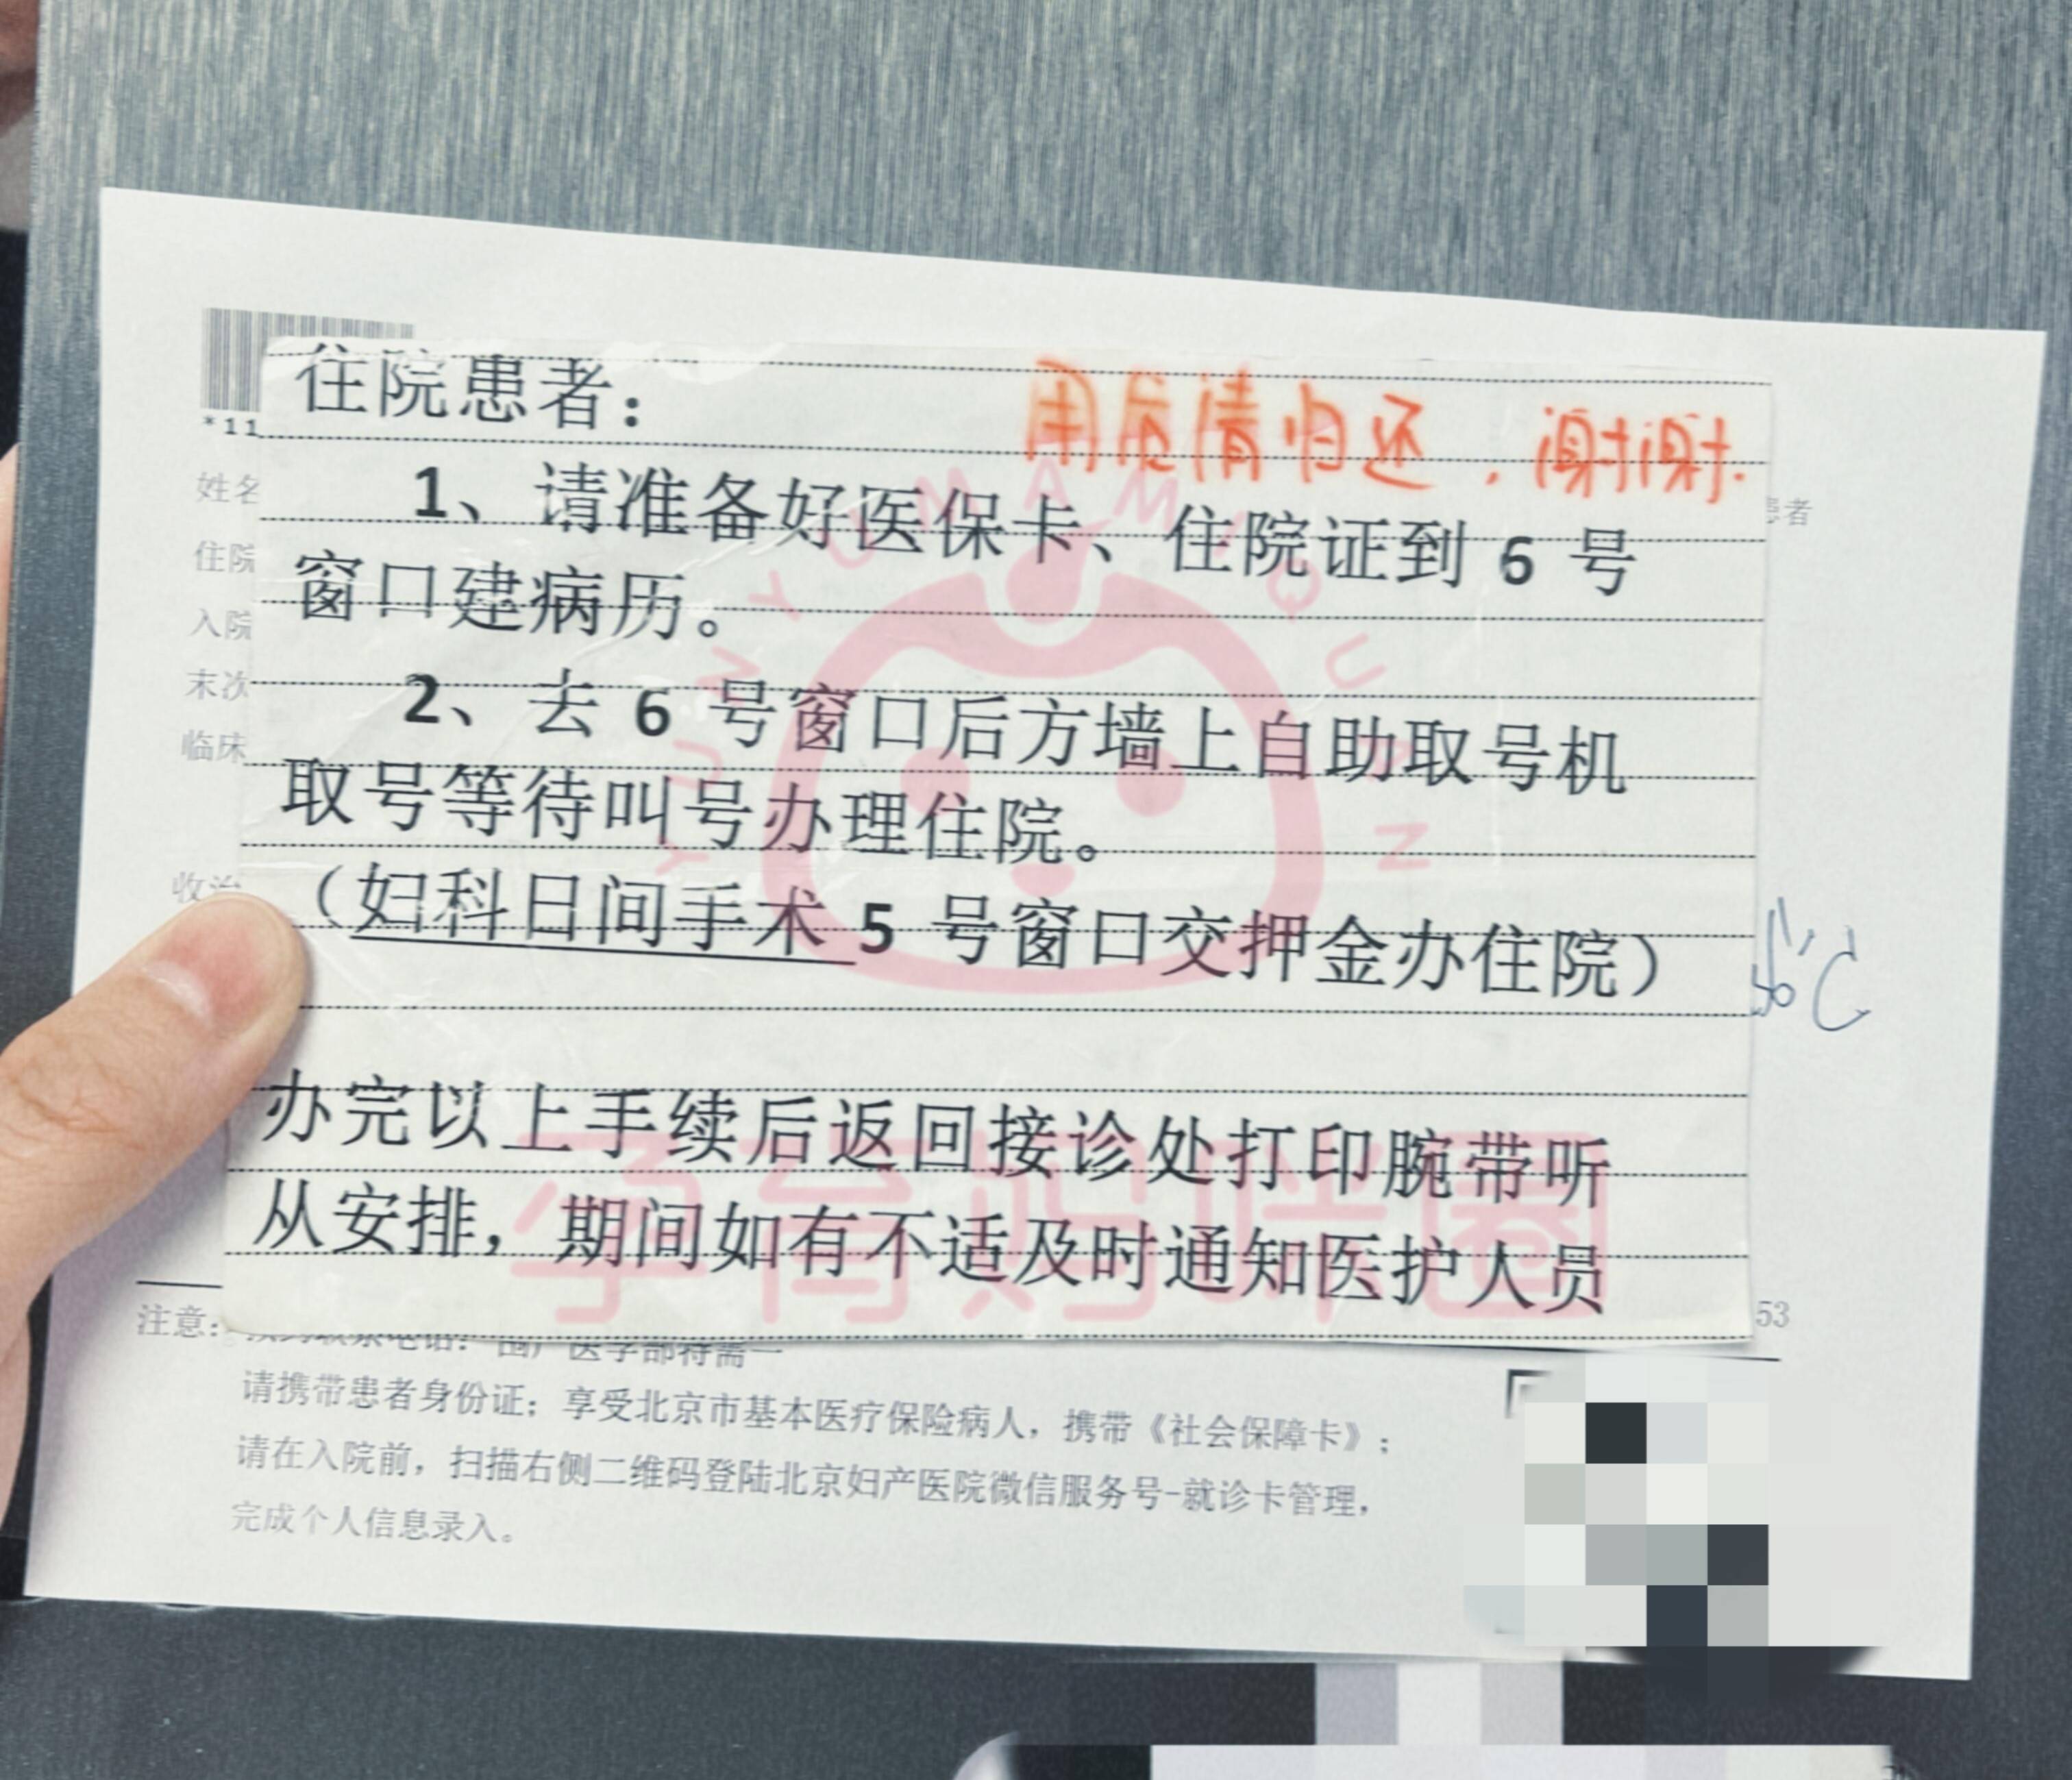 *11
姓名
住院
患者
入院
末次
临床
收治
住院患者：
用后请归还，谢谢.
1、请准备好医保卡、住院证到 6 号
窗口建病历。
2、去 6 号窗口后方墙上自助取号机
取号等待叫号办理住院。
（妇科日间手术 5 号窗口交押金办住院）
办完以上手续后返回接诊处打印腕带听
从安排，期间如有不适及时通知医护人员
YUN YU MA MI QUAN
孕育妈咪圈
53
注意：
请携带患者身份证；享受北京市基本医疗保险病人，携带《社会保障卡》；
请在入院前，扫描右侧二维码登陆北京妇产医院微信服务号-就诊卡管理，
完成个人信息录入。